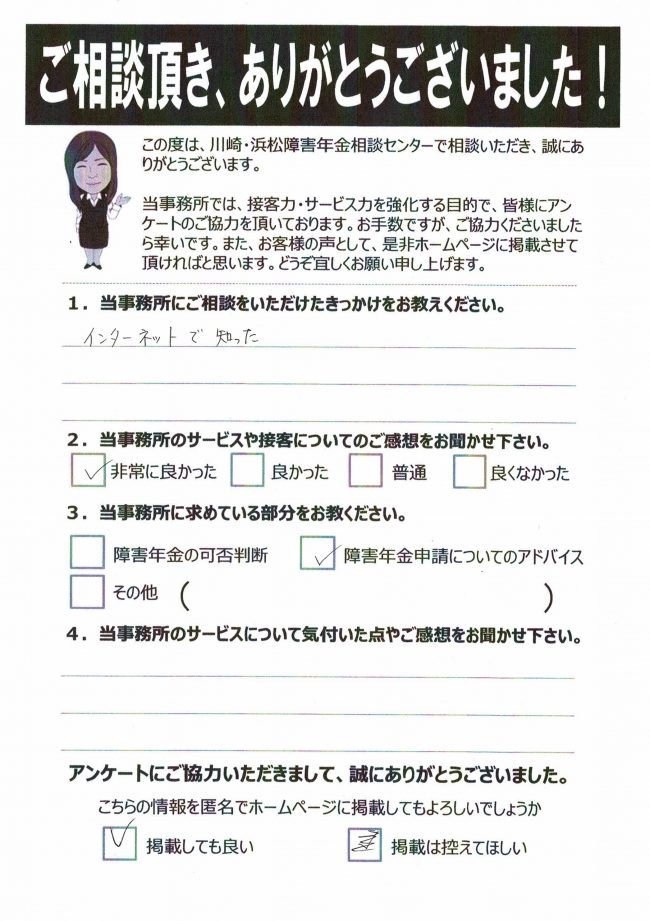 ご相談頂き、ありがとうございました！
この度は、川崎・浜松障害年金相談センターで相談いただき、誠にあ
りがとうございます。
当事務所では、接客力・サービス力を強化する目的で、皆様にアン
ケートのご協力を頂いております。お手数ですが、ご協力くださいました
ら幸いです。また、お客様の声として、是非ホームページに掲載させて
頂ければと思います。どうぞ宜しくお願い申し上げます。
１．当事務所にご相談をいただけたきっかけをお教えください。
インターネットで知った
２．当事務所のサービスや接客についてのご感想をお聞かせ下さい。
非常に良かった 良かった 普通 良くなかった
３．当事務所に求めている部分をお教ください。
障害年金の可否判断 障害年金申請についてのアドバイス
その他 （ ）
４．当事務所のサービスについて気付いた点やご感想をお聞かせ下さい。
アンケートにご協力いただきまして、誠にありがとうございました。
こちらの情報を匿名でホームページに掲載してもよろしいでしょうか
掲載しても良い 掲載は控えてほしい